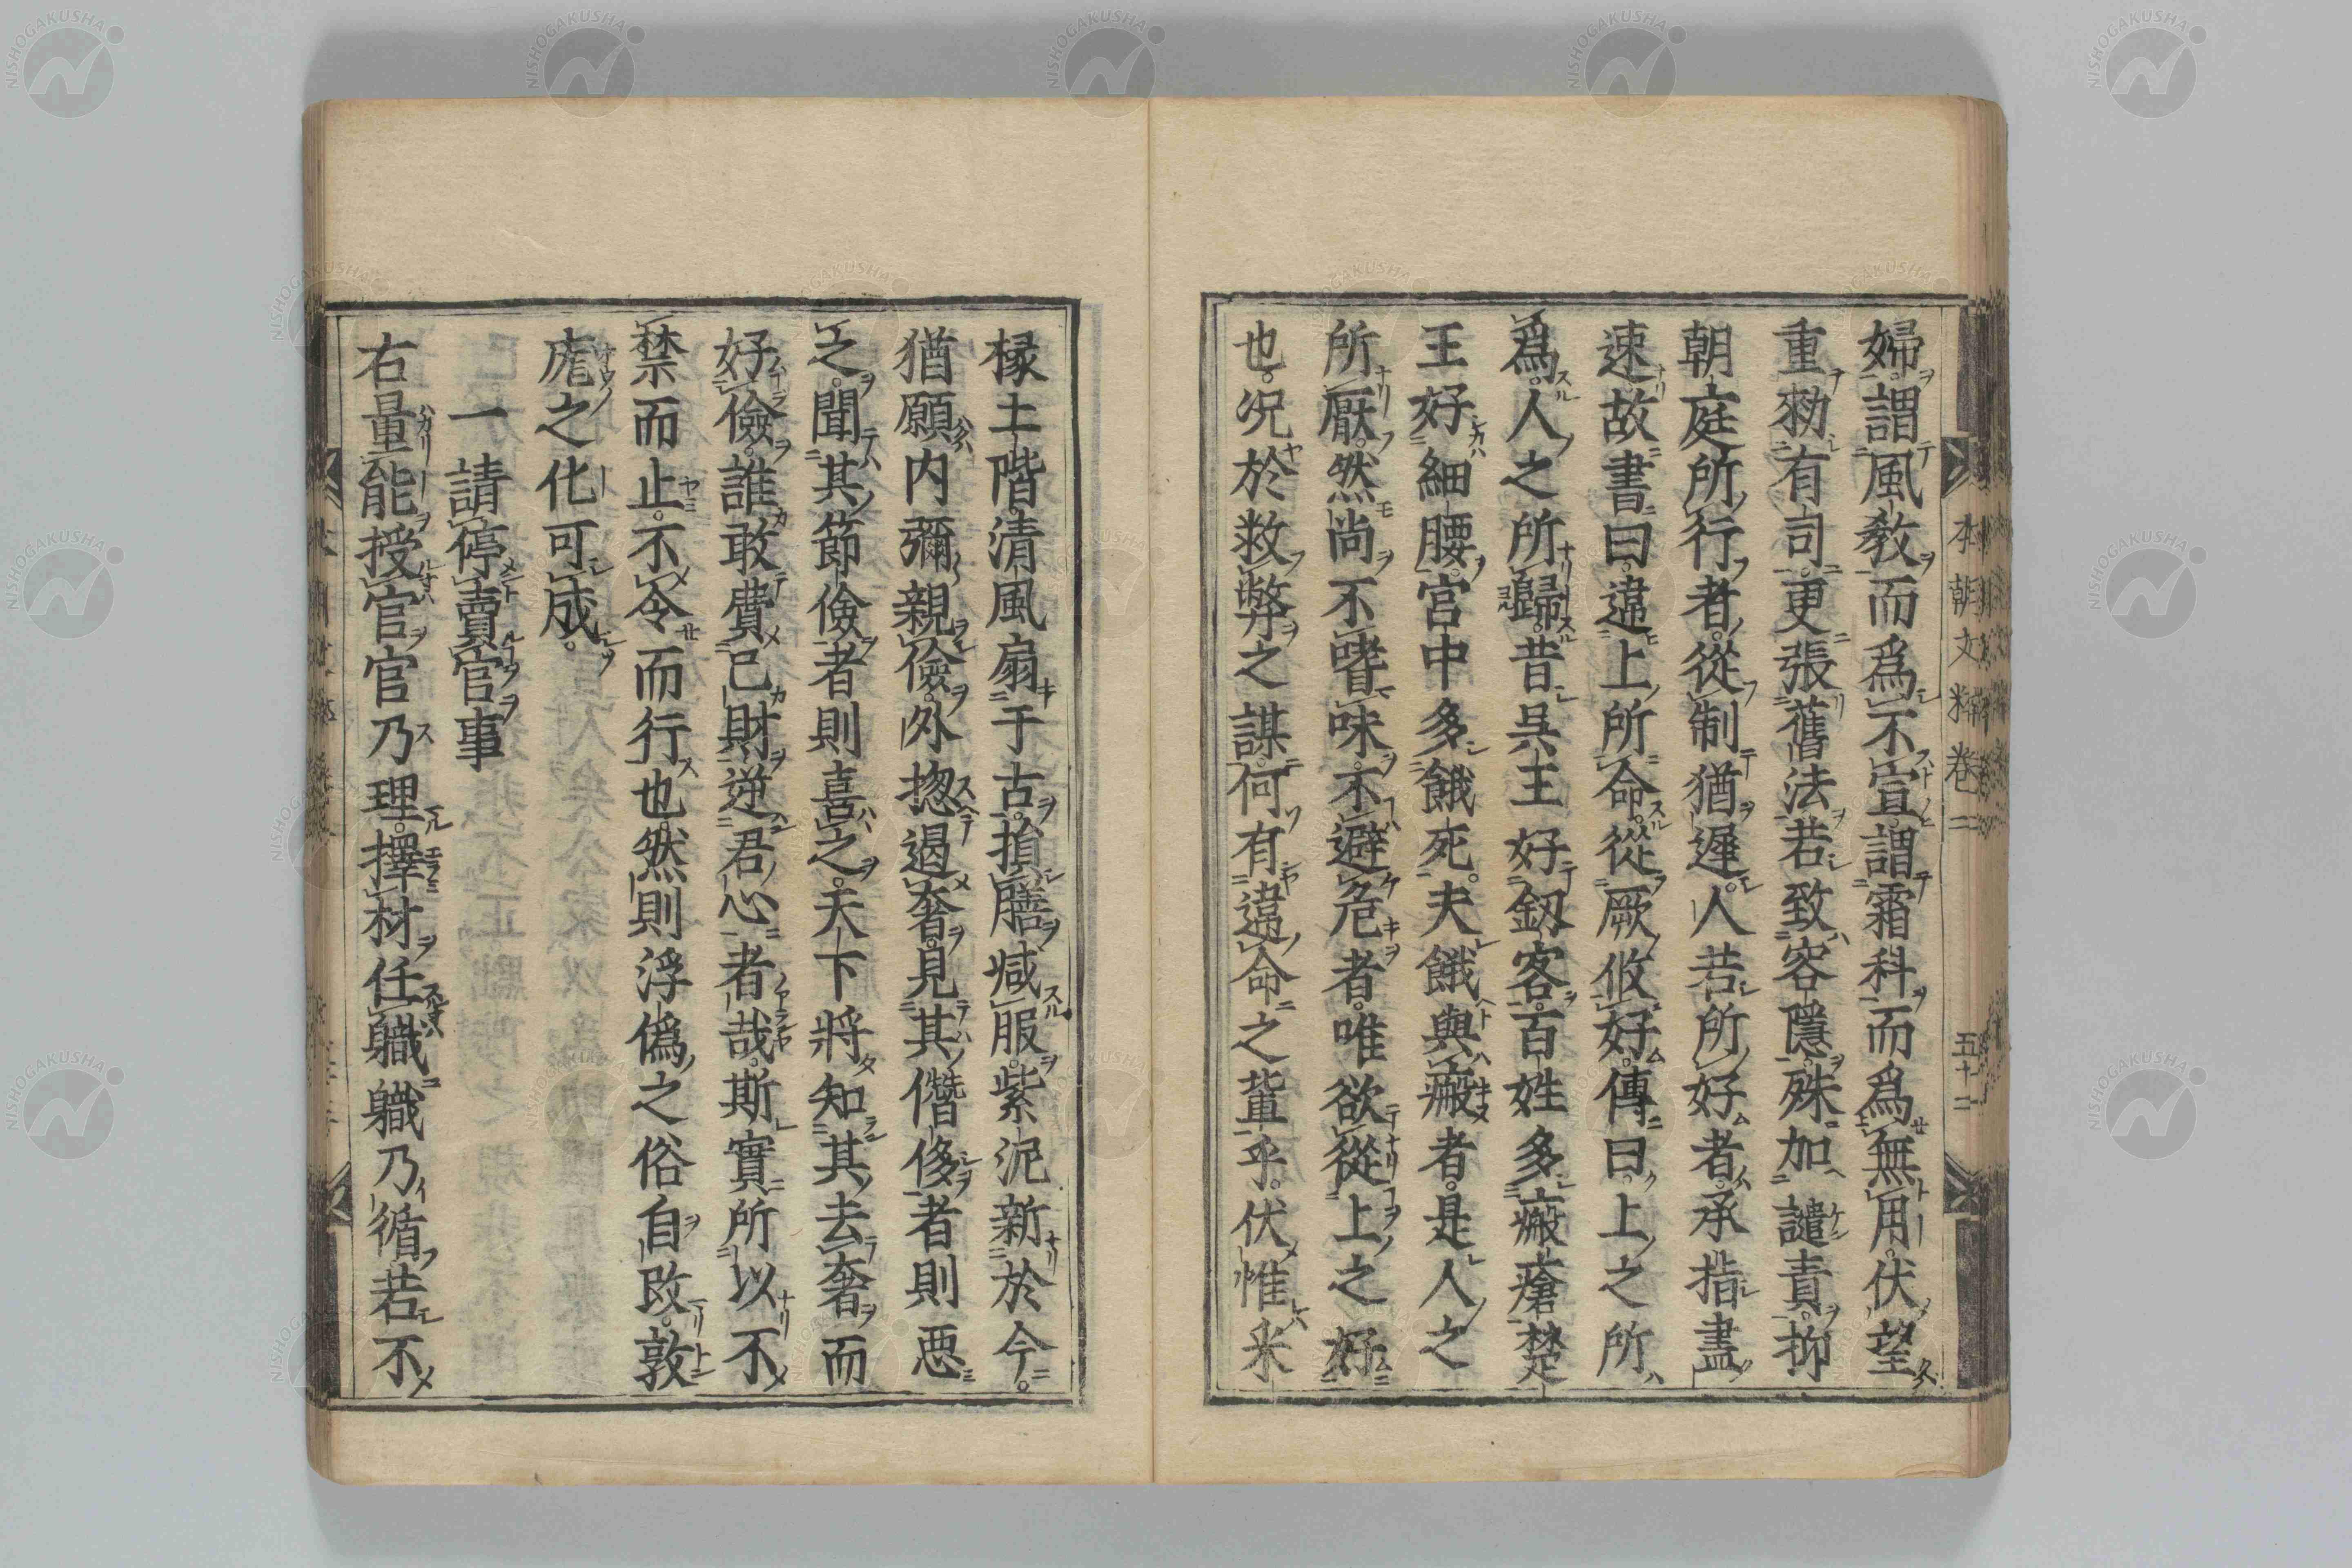 婦謂風教而爲不宣謂霜科而爲無用伏望
重勑有司更張舊法若致容隱殊加譴責抑
朝庭所行者從制猶遲人若所好者承指盡
速故書曰違上所命從厥攸好傳曰上之所
爲人之所歸昔呉王好釼客百姓多瘢瘡楚
王好細腰宮中多餓死夫餓與瘢者是人之
所厭然尚不嗜味不避危者唯欲從上之好
也况於救弊之謀何有違命之輩乎伏惟釆
本朝文粹卷二
五十二
椽土階清風扇于古損膳减服紫泥新於今
猶願内彌親儉外揔遏奢見其僭侈者則惡
之聞其節儉者則喜之天下將知其去奢而
好儉誰敢費己財逆君心者哉斯實所以不
禁而止不令而行也然則浮僞之俗自改敦
庬之化可成
一請停賣官事
右量能授官官乃理擇材任職職乃循若不